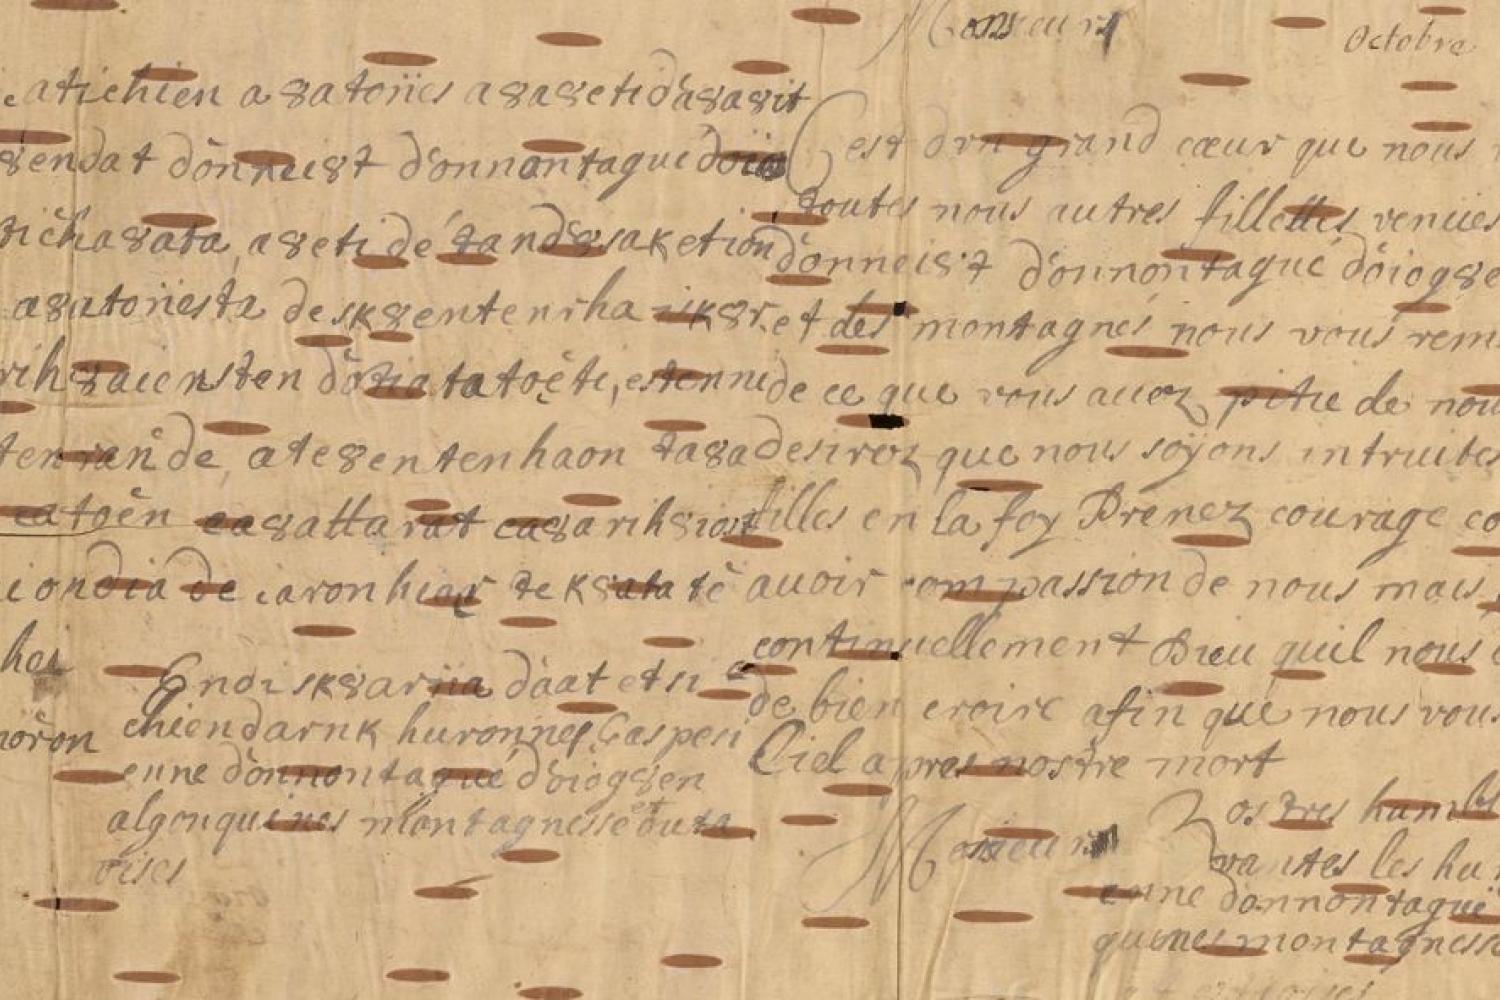 atichien a8atoñes a8a8eti d'a8a8it
8endat dónnei8t d'onnontague
tichа8ata, a8eti dé tand8saketion
a8atoriesta desk8entenrha isk8r
rih8aiensten dótiatatoéti, estenni
tenrande, ate8entenhaon ta8a
eatoén ea8attarat ea8arih8iost
iondia de iaronhiae tek8atate
hei
noron
Endi sk8ariia daat etsi
chiendarnk huronnes, Gaspesi
enne dónnontagué d'óiog8en
algonquines montagnesse et outa
oises
Monsieur
Octobre
Cest d'vn grand cœur que nous
toutes nous autres fillettes venues
dónneis't d'onnontagué dóiog8e
et des montagnés nous vous rem
de ce que vous auez pitie de nou
desirez que nous soyons intruites
filles en la foy Prenez courage co
auoir compassion de nous mais
continuellement Dieu quil nous
de bien croire afin que nous vous
Ciel apres nostre mort
Vostres humbl
Monsieur
vantes les hu
enne donnontague
quines montagness